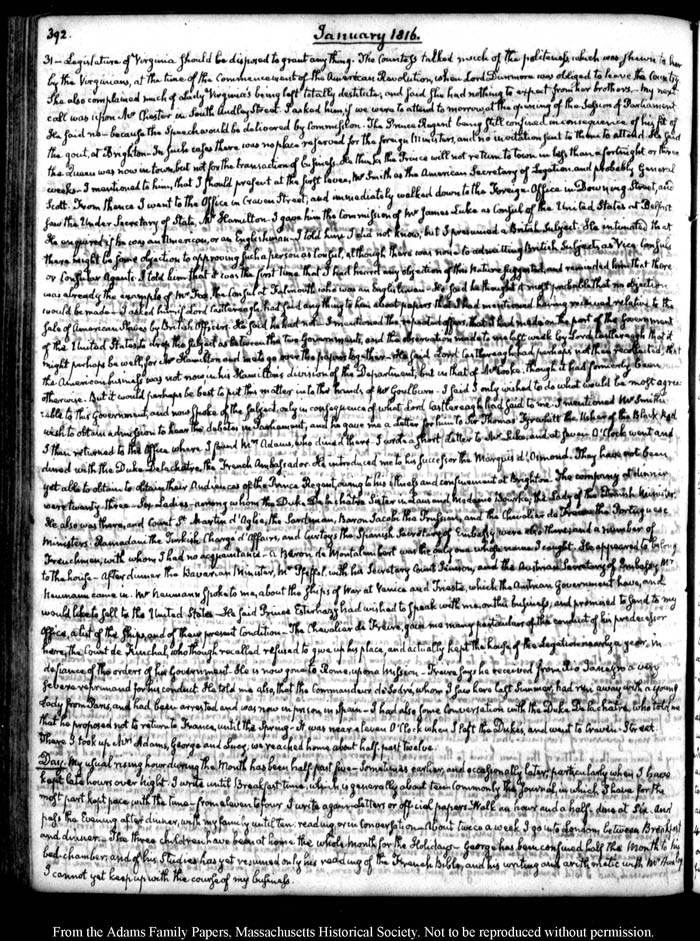 392.
January 1816.
31 – Legislature of Virginia should be disposed to grant any thing. The Countess talked much of the politeness which was shewn to her
by the Virginians, at the time of the Commencement of the American Revolution, when Lord Dunmore was obliged to leave the Country.
She also complained much of Lady Virginia's being left totally destitute, and said she had nothing to expect from her brothers. My next
call was upon Mr Chester in South Audley Street. I asked him if we were to attend to morrow at the opening of the Session of Parliament.
He said no – because the Speech would be delivered by Commission. The Prince Regent being still confined in consequence of his fit of
the gout, at Brighton. In such cases there was no place reserved for the foreign Ministers, and no invitation sent to them to attend. He said
the Queen was now in town, but not for the transaction of business. He thinks the Prince will not return to town in less than a fortnight or three
weeks. I mentioned to him, that I should present at the first levee, Mr Smith as the American Secretary of Legation, and probably General
Scott. From thence I went to the Office in Craven Street, and immediately walked down to the Foreign Office in Downing Street, and
saw the Under Secretary of State, Mr Hamilton. I gave him the Commission of Mr James Luke as Consul of the United States at Belfast.
He enquired if he was an American, or an Englishman – I told him I did not know, but I presumed a British Subject. He intimated that
there might be some objection to approving such a person as Consul, although there was none to admitting British Subjects, as Vice Consuls
or Consular Agents. I told him that it was the first time that I had heard any objection of this Nature suggested, and reminded him that there
was already the example of Mr Fox, the Consul at Falmouth who was an Englishman – He said he thought it most probable that no objection
would be made – I asked him if Lord Castlereagh had said any thing to him about papers that I had mentioned having received relative to the
Sale of American Slaves by British Officers. He said he had not – I mentioned the repeated offers, that I had made on the part of the Government
of the United States to drop the subject as between the two Governments, and the observation made to me last week by Lord Castlereagh that it
might perhaps be well, for Mr Hamilton and me to go over the papers together – He said Lord Castlereagh had perhaps not then recollected, that
the American business was not now in his Hamiltons division of the Department, but in that of Mr Cooke, though it had formerly been
otherwise. But it would perhaps be best to put this matter into the hands of Mr Goulburn – I said I only wished to do what would be most agree-
able to this Government, and now spoke of the subject, only in consequence of what Lord Castlereagh had said to me. I mentioned Mr Smith's
wish to obtain admission to hear the debates in Parliament, and he gave me a letter for him to Sir Thomas Tyrwhitt the Usher of the Black Rod
I then returned to the Office where I found Mrs Adams, who dined there. I wrote a short letter to Mr Luke, and at seven O'Clock went and
dined with the Duke Delachatre, the French Ambassador. He introduced me to his successor the Marquis d'Osmond. They have not been
yet able to obtain to obtain their Audiences of the Prince Regent, owing to his illness and confinement at Brighton. The company at dinner
were twenty-three – Six Ladies, among whom the Duke De la Chatre's Sister in Law and Madame Bourke, the Lady of the Danish Minister.
He also was there, and Count St Martin d'Aglie, the Sardinian, Baron Jacobi the Prussian, and the Chevalier de Freire the Portuguese
Ministers. Ramadani the Turkish Chargé d'Affairs, and Curtoys the Spanish Secretary of Embassy were also there; and a number of
Frenchmen, with whom I had no acquaintance – a Baron de Montalembert was the only one whose name I caught. He appeared to belong
to the house – After dinner the Bavarian Minister, Mr Pfeffel, with his Secretary Count Jenison, and the Austrian Secretary of Embassy, Mr
Neumann came in. Mr Neumann spoke to me, about the Ships of War at Venice and Trieste, which the Austrian Government have, and
would like to sell to the United States – He said Prince Esterhazy had wished to speak with me, on this business, and promised to send to my
Office, a list of the Ships, and of their present condition – The Chevalier de Freire, gave me many particulars of the conduct of his predecessor
here, the Count de Funchal, who though recalled refused to give up his place, and actually kept the house of the Legation nearly a year, in
defiance of the orders of his Government – He is now gone to Rome, upon a Mission – Freire says he received from Rio Janeiro a very
severe reprimand for his conduct. He told me also, that the Commandeur de Sodre, whom I saw here last Summer, had run away with a young
Lady from Paris, and had been arrested and was now in prison in Spain – I had also some Conversation with the Duke De la Chatre, who told me
that he proposed not to return to France, until the Spring – It was near eleven O'Clock when I left the Duke's, and went to Craven-Street.
There I took up Mrs Adams, George and Lucy; we reached home about half past twelve.
Day. My usual rising hour during the Month has been half past five – sometimes earlier, and occasionally later, particularly when I have
kept late hours over night. I write until Breakfast time, which is generally about ten. Commonly the Journal, in which I have for the
most part kept pace with the time – from eleven to four I write again – letters or official papers. Walk an hour and a half, dine at Six. And
pass the Evening after dinner, with my family until ten, reading, or in conversation. About twice a week I go into London between Breakfast
and dinner. – The three children have been at home the whole Month for the Holidays – George has been confined half the Month to his
bed-chamber; and of his Studies has yet resumed only his reading of the French Bible, and his writing and arithmetic with Mr
I cannot yet keep up with the course of my business.
From the Adams Family Papers, Massachusetts Historical Society. Not to be reproduced without permission.